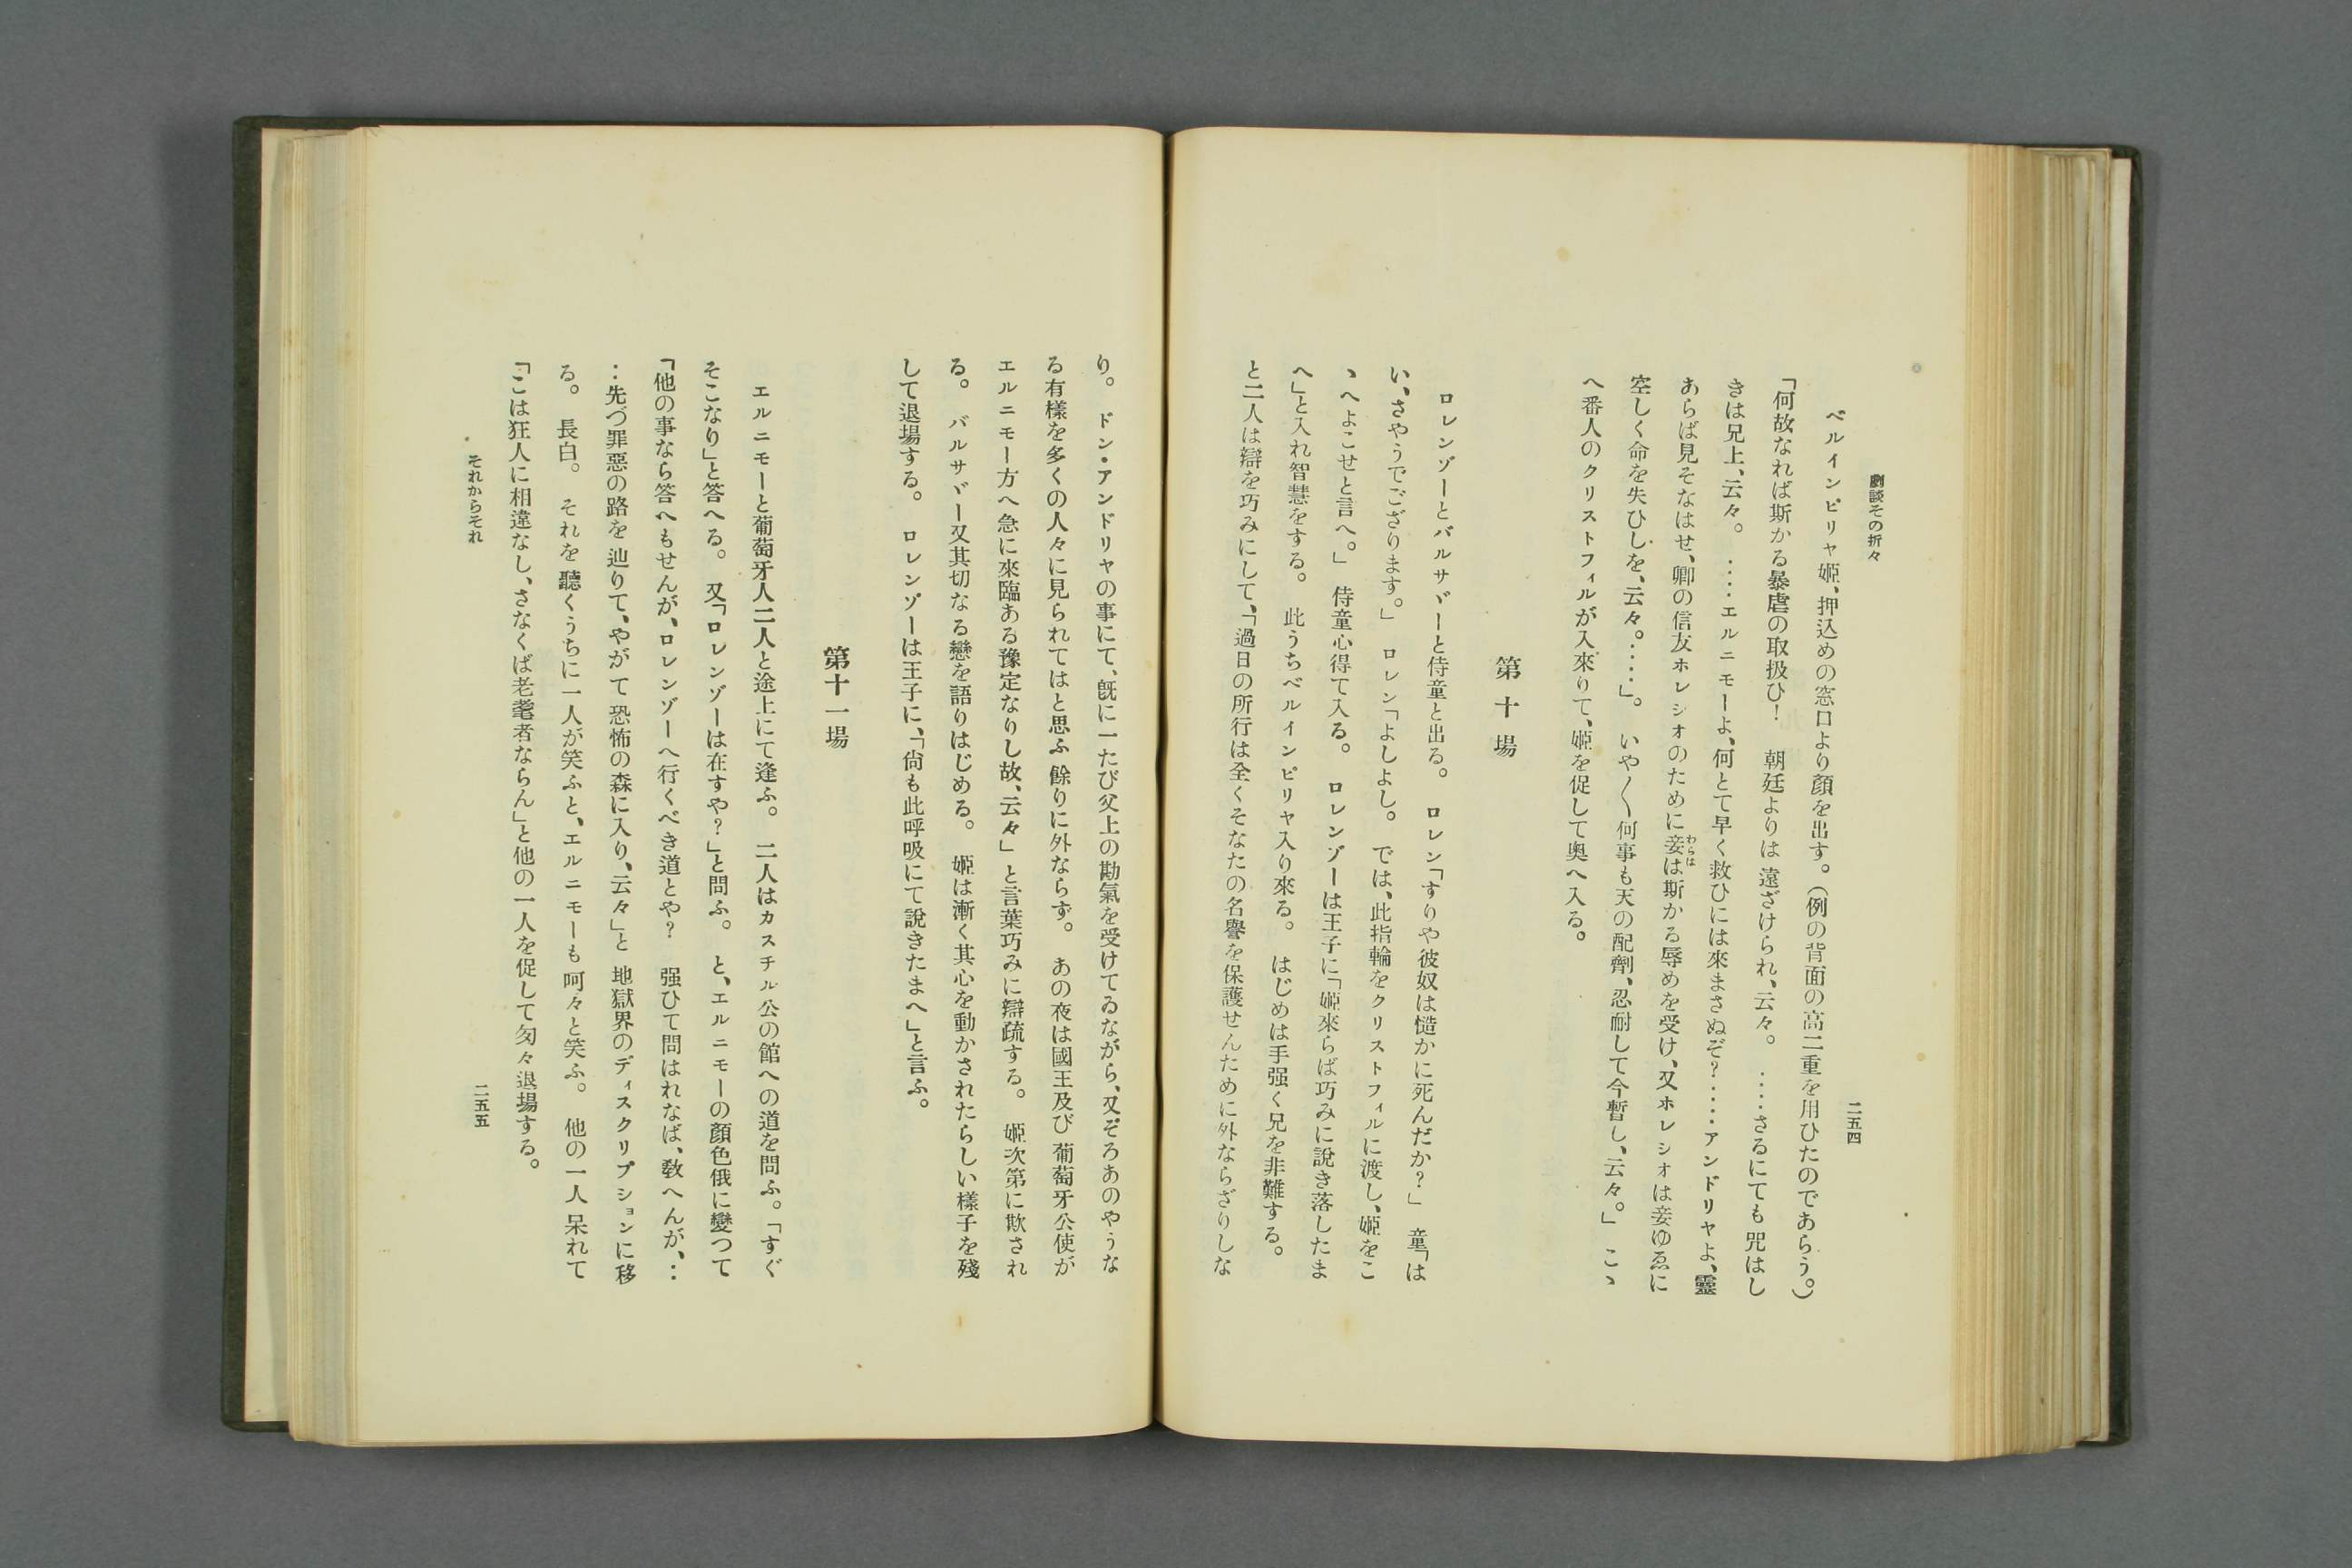 劇談その折々
二五四
ベルインピリヤ姬、押込めの窓口より顏を出す。（例の背面の高二重を用ひたのであらう。）
「何故なれば斯かる暴虐の取扱ひ！　朝廷よりは遠ざけられ、云々。　‥‥さるにても咒はし
きは兄上、云々。　‥‥エルニモーよ、何とて早く救ひには來まさぬぞ？‥‥アンドリヤよ、靈
あらば見そなはせ、卿の信友ホレシオのために妾は斯かる辱めを受け、又ホレシオは妾ゆゑに
わらは
空しく命を失ひしを、云々。‥‥」。　いや〱何事も天の配劑、忍耐して今暫し、云々。」　こゝ
へ番人のクリストフィルが入來りて、姬を促して奥へ入る。
第十場
ロレンゾーとバルサヾーと侍童と出る。　ロレン「すりや彼奴は慥かに死んだか？」　童「は
い、さやうでござります。」　ロレン「よしよし。　では、此指輪をクリストフィルに渡し、姬をこ
ゝへよこせと言へ。」　侍童心得て入る。　ロレンゾーは王子に「姬來らば巧みに說き落したま
へ」と入れ智慧をする。　此うちベルインピリヤ入り來る。　はじめは手强く兄を非難する。
と二人は辯を巧みにして、「過日の所行は全くそなたの名譽を保護せんために外ならざりしな
り。　ドン・アンドリヤの事にて、旣に一たび父上の勘氣を受けてるながら、又ぞろあのやうな
る有樣を多くの人々に見られてはと思ふ餘りに外ならず。　あの夜は國王及び葡萄牙公使が
エルニモー方へ急に來臨ある豫定なりし故、云々」と言葉巧みに辯疏する。　姬次第に欺され
る。　バルサヾー又其切なる戀を語りはじめる。　姬は漸く其心を動かされたらしい樣子を殘
して退場する。　ロレンゾーは王子に、「尙も此呼吸にて說きたまへ」と言ふ。
第十一場
エルニモーと葡萄牙人二人と途上にて逢ふ。　二人はカスチル公の館への道を問ふ。「すぐ
そこなり」と答へる。　又「ロレンゾーは在すや？」と問ふ。　と、エルニモーの顏色俄に變つて
「他の事なら答へもせんが、ロレンゾーへ行くべき道とや？　强ひて問はれなば、敎へんが、‥
‥先づ罪惡の路を辿りて、やがて恐怖の森に入り、云々」と地獄界のディスクリプションに移
る。　長白。　それを聽くうちに一人が笑ふと、エルニモーも呵々と笑ふ。　他の一人呆れて
「こは狂人に相違なし、さなくば老耄者ならん」と他の一人を促して匆々退場する。
それからそれ
二五五